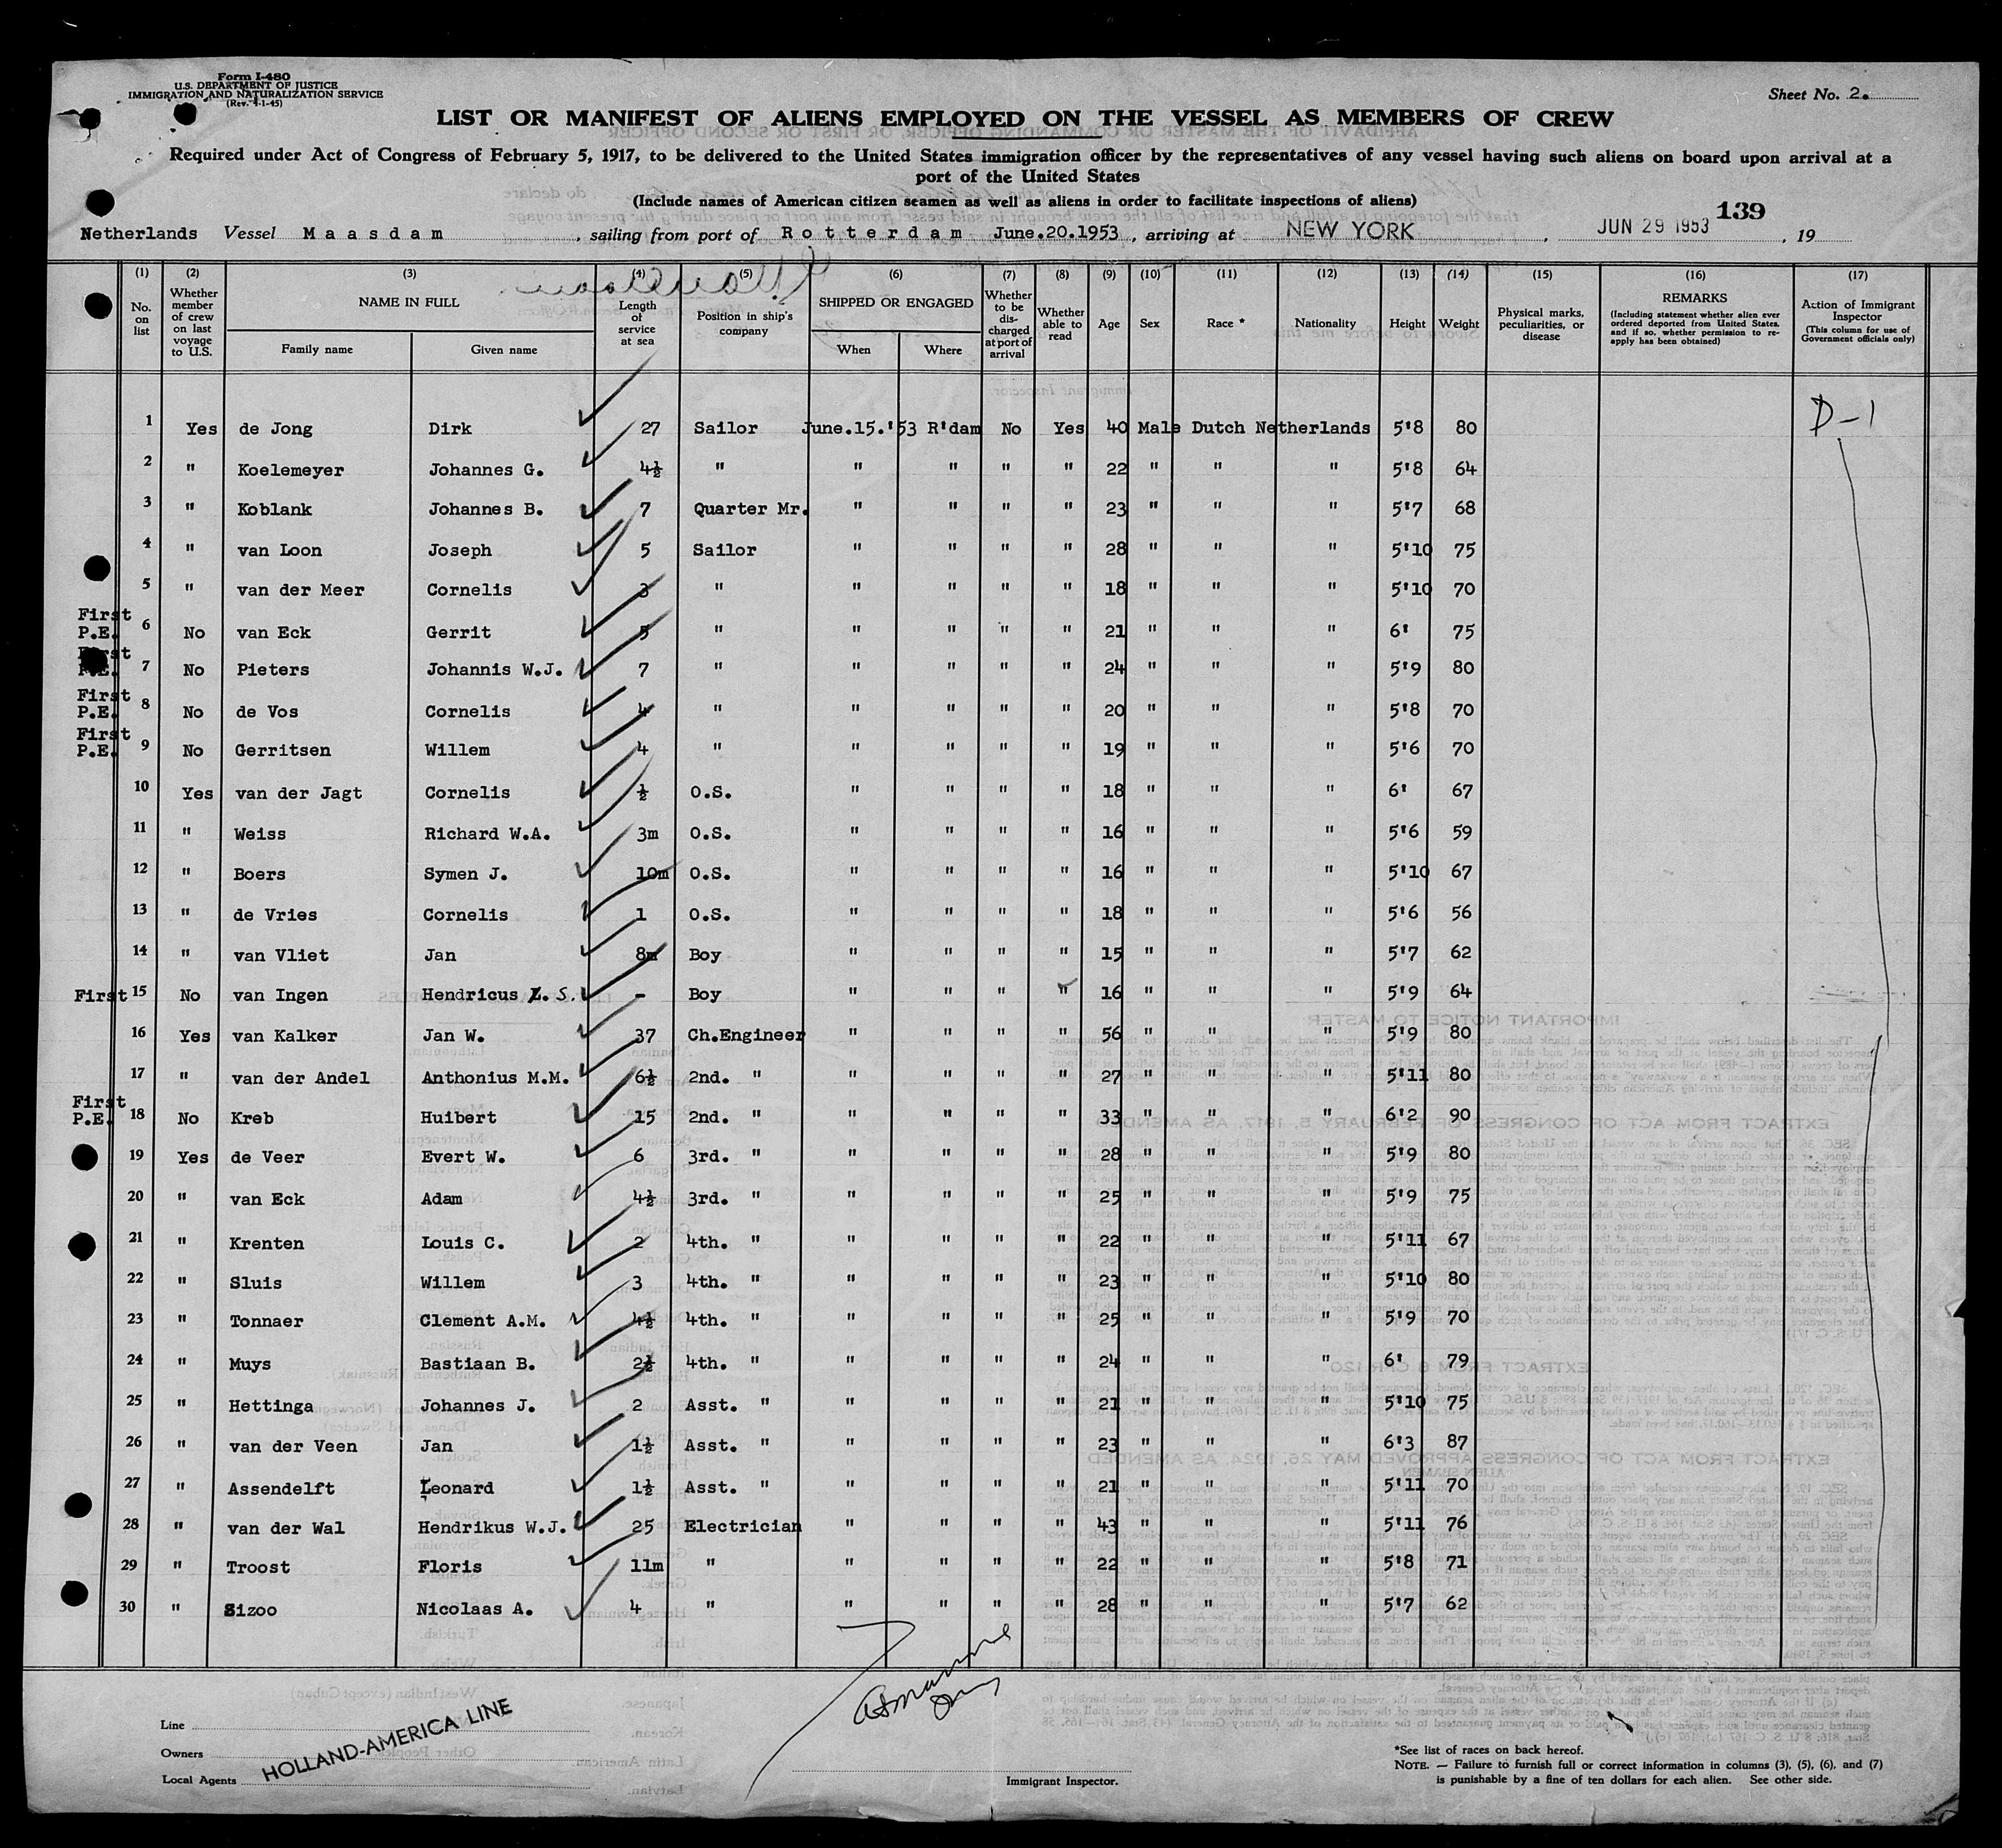 Form I-480
U.S. DEPARTMENT OF JUSTICE
IMMIGRATION AND NATURALIZATION SERVICE
(Rev. 4-1-45)
Sheet No. 2.
LIST OR MANIFEST OF ALIENS EMPLOYED ON THE VESSEL AS MEMBERS OF CREW
Required under Act of Congress of February 5, 1917, to be delivered to the United States immigration officer by the representatives of any vessel having such aliens on board upon arrival at a
port of the United States
(Include names of American citizen seamen as well as aliens in order to facilitate inspections of aliens)
139
Netherlands Vessel Maasdam, sailing from port of Rotterdam June.20.1953, arriving at NEW YORK, JUN 29 1953, 19
(1) (2) (3) (4) (5) (6) (7) (8) (9) (10) (11) (12) (13) (14) (15) (16) (17)
No. on list
Whether member of crew on last voyage to U.S.
NAME IN FULL
Family name Given name
Length of service at sea
Position in ship's company
SHIPPED OR ENGAGED
When Where
Whether to be discharged at port of arrival
Whether able to read
Age Sex Race * Nationality Height Weight
Physical marks, peculiarities, or disease
REMARKS
(Including statement whether alien ever ordered deported from United States, and if so, whether permission to re-apply has been obtained)
Action of Immigrant Inspector
(This column for use of Government officials only)
D-1
1 Yes de Jong Dirk 27 Sailor June.15.'53 R'dam No Yes 40 Male Dutch Netherlands 5'8 80
2 " Koelemeyer Johannes G. 4½ " " " " " 22 " " " 5'8 64
3 " Koblank Johannes B. 7 Quarter Mr. " " " " 23 " " " 5'7 68
4 " van Loon Joseph 5 Sailor " " " " 28 " " " 5'10 75
5 " van der Meer Cornelis 3 " " " " " 18 " " " 5'10 70
First P.E. 6 No van Eck Gerrit 5 " " " " " 21 " " " 6' 75
First P.E. 7 No Pieters Johannis W.J. 7 " " " " " 24 " " " 5'9 80
First P.E. 8 No de Vos Cornelis 4 " " " " " 20 " " " 5'8 70
First P.E. 9 No Gerritsen Willem 4 " " " " " 19 " " " 5'6 70
10 Yes van der Jagt Cornelis ½ O.S. " " " " 18 " " " 6' 67
11 " Weiss Richard W.A. 3m O.S. " " " " 16 " " " 5'6 59
12 " Boers Symen J. 10m O.S. " " " " 16 " " " 5'10 67
13 " de Vries Cornelis 1 O.S. " " " " 18 " " " 5'6 56
14 " van Vliet Jan 8m Boy " " " " 15 " " " 5'7 62
First 15 No van Ingen Hendricus S. - Boy " " " " 16 " " " 5'9 64
16 Yes van Kalker Jan W. 37 Ch.Engineer " " " " 56 " " " 5'9 80
17 " van der Andel Anthonius M.M. 6½ 2nd. " " " " " 27 " " " 5'11 80
First P.E. 18 No Kreb Huibert 15 2nd. " " " " " 33 " " " 6'2 90
19 Yes de Veer Evert W. 6 3rd. " " " " " 28 " " " 5'9 80
20 " van Eck Adam 4½ 3rd. " " " " " 25 " " " 5'9 75
21 " Krenten Louis C. 2 4th. " " " " " 22 " " " 5'11 67
22 " Sluis Willem 3 4th. " " " " " 23 " " " 5'10 80
23 " Tonnaer Clement A.M. 4½ 4th. " " " " " 25 " " " 5'9 70
24 " Muys Bastiaan B. 2½ 4th. " " " " " 24 " " " 6' 79
25 " Hettinga Johannes J. 2 Asst. " " " " " 21 " " " 5'10 75
26 " van der Veen Jan 1½ Asst. " " " " " 23 " " " 6'3 87
27 " Assendelft Leonard 1½ Asst. " " " " " 21 " " " 5'11 70
28 " van der Wal Hendrikus W.J. 25 Electrician " " " " 43 " " " 5'11 76
29 " Troost Floris 11m " " " " " 22 " " " 5'8 71
30 " Sizoo Nicolaas A. 4 " " " " " 28 " " " 5'7 62
Line
Owners
Local Agents
HOLLAND-AMERICA LINE
Immigrant Inspector.
*See list of races on back hereof.
NOTE. — Failure to furnish full or correct information in columns (3), (5), (6), and (7)
is punishable by a fine of ten dollars for each alien. See other side.